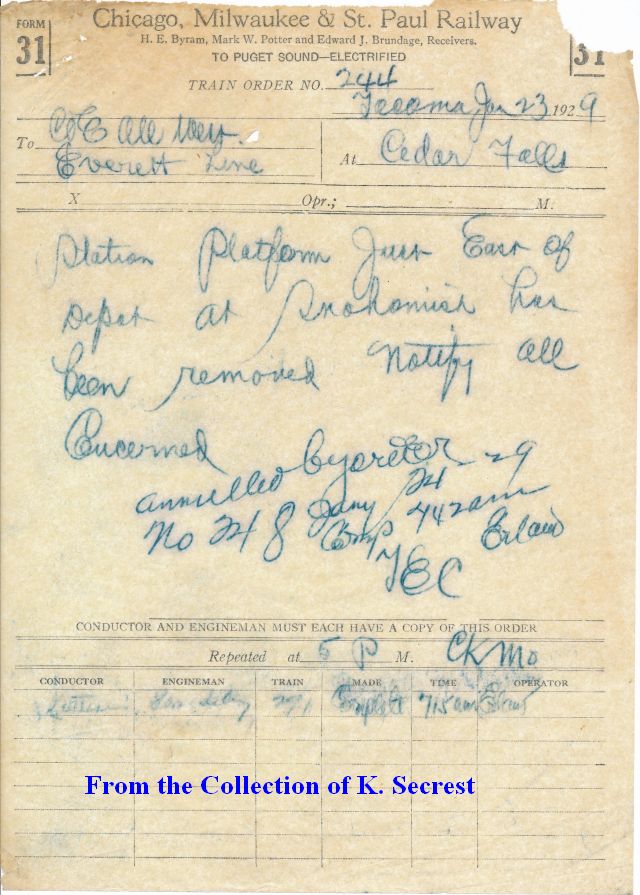 FORM 31
Chicago, Milwaukee & St. Paul Railway
31
H. E. Byram, Mark W. Potter and Edward J. Brundage, Receivers.
TO PUGET SOUND—ELECTRIFIED
TRAIN ORDER NO. 244
Tacoma Jan 23 1929
To C&E All
Everett Line
At Cedar Falls
X Opr.; M.
Station Platform Just East of
Depot at Snohomish has
been removed Notify all
Concerned
annulled by order 29
No 248 Jany 24
Comp 442am Erlain
TEC
CONDUCTOR AND ENGINEMAN MUST EACH HAVE A COPY OF THIS ORDER
Repeated at 5 P M. CK Mo
CONDUCTOR ENGINEMAN TRAIN MADE TIME OPERATOR
Complete 715am
From the Collection of K. Secrest